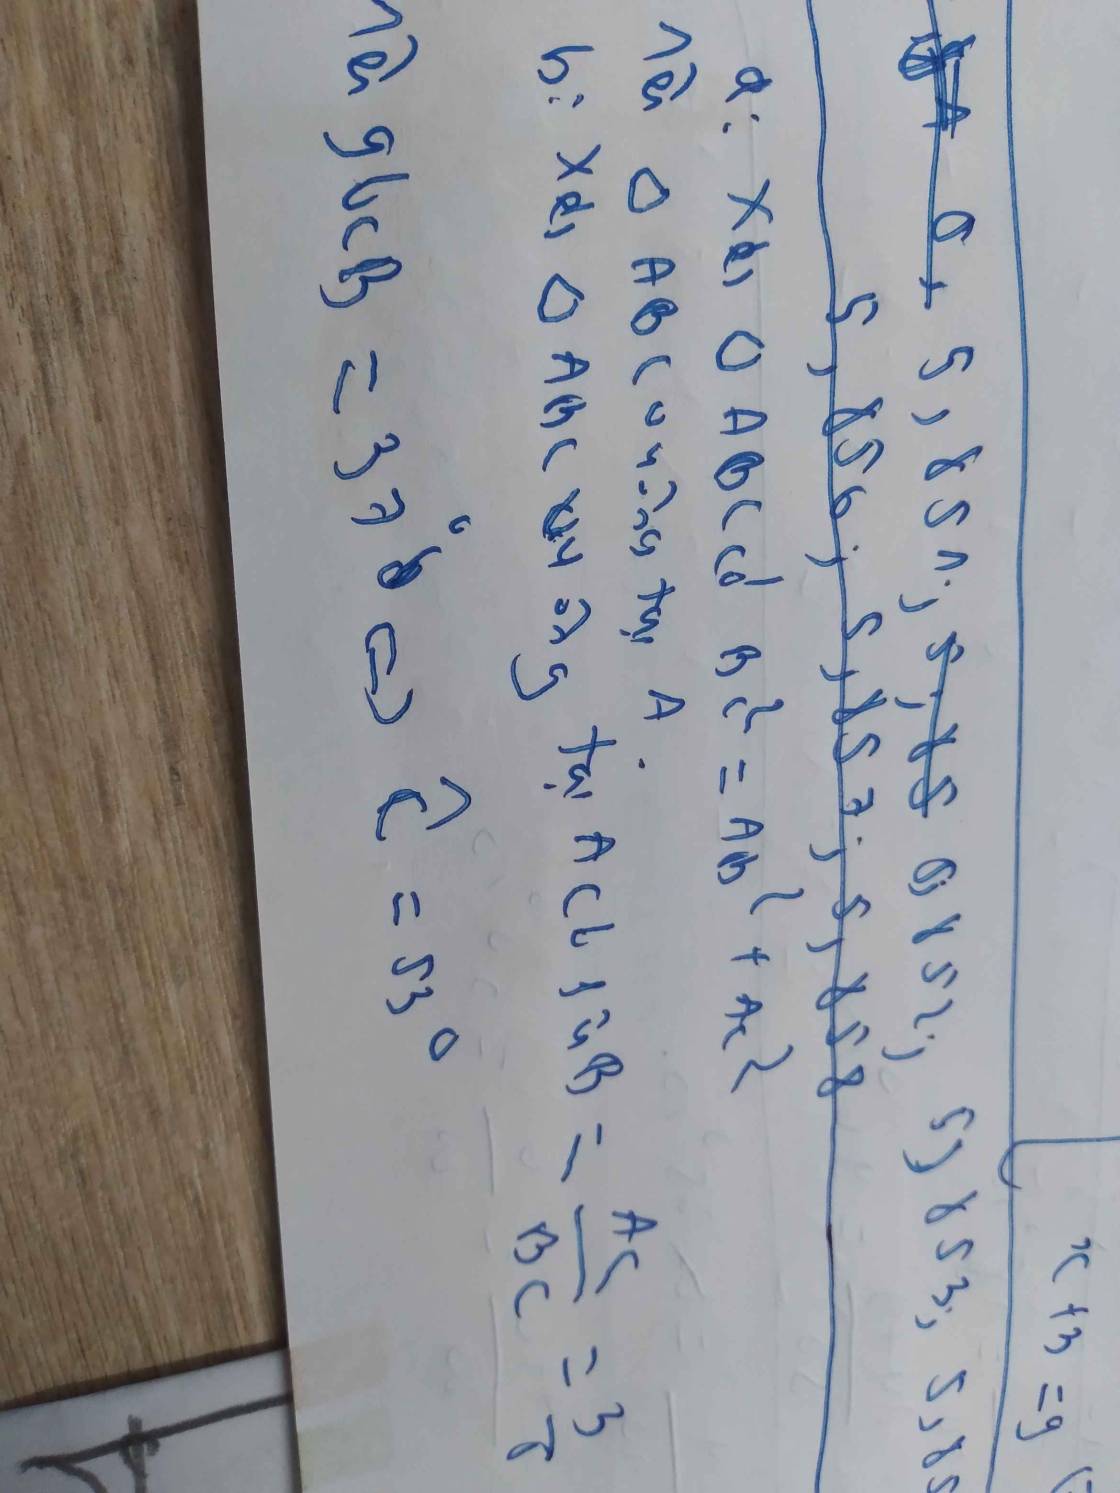 x+3=9
5,851; 5,85 5,852; 5,853; 5,85
5,856; 5,857; 5,858
a: Xét △ ABC có BC² = AB² + AC²
nên △ ABC vuông tại A.
b: Xét △ ABC vuông tại A có sinB = AC/BC = 3/5
nên góc B = 37° ⇔ Ĉ = 53°